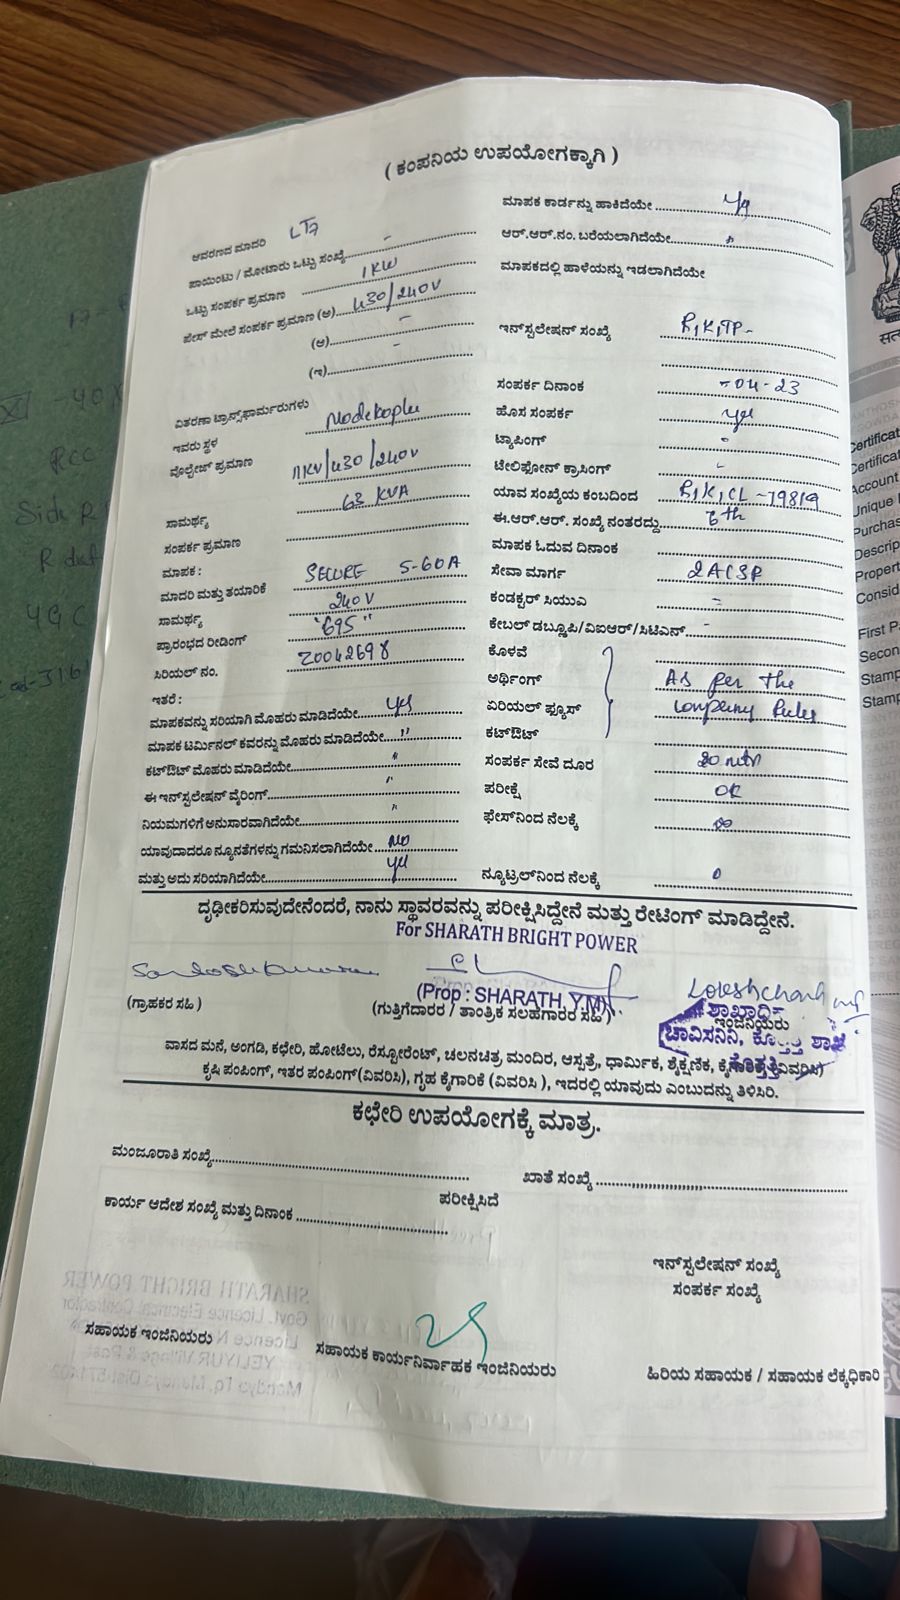 ( ಕಂಪನಿಯ ಉಪಯೋಗಕ್ಕಾಗಿ )
ಆವರಣದ ಮಾದರಿ LT7
ಪಾಯಿಂಟು / ಮೋಟಾರು ಒಟ್ಟು ಸಂಖ್ಯೆ -
ಒಟ್ಟು ಸಂಪರ್ಕ ಪ್ರಮಾಣ 1KW
ಫೇಸ್ ಮೇಲೆ ಸಂಪರ್ಕ ಪ್ರಮಾಣ (ಅ) 430/240V
(ಆ) -
(ಇ) -
ವಿತರಣಾ ಟ್ರಾನ್ಸ್‌ಫಾರ್ಮರುಗಳು
ಇವರು ಸ್ಥಳ
ವೊಲ್ಟೇಜ್ ಪ್ರಮಾಣ 11KV/430/240V
63 KVA
ಸಾಮರ್ಥ್ಯ
ಸಂಪರ್ಕ ಪ್ರಮಾಣ
ಮಾಪಕ :
ಮಾದರಿ ಮತ್ತು ತಯಾರಿಕೆ SECURE 5-60A
ಸಾಮರ್ಥ್ಯ 240V
ಪ್ರಾರಂಭದ ರೀಡಿಂಗ್ "695"
ಸಿರಿಯಲ್ ನಂ. 20042698
ಇತರೆ :
ಮಾಪಕವನ್ನು ಸರಿಯಾಗಿ ಮೊಹರು ಮಾಡಿದೆಯೇ yes
ಮಾಪಕ ಟರ್ಮಿನಲ್ ಕವರನ್ನು ಮೊಹರು ಮಾಡಿದೆಯೇ "
ಕಟ್‌ಔಟ್ ಮೊಹರು ಮಾಡಿದೆಯೇ "
ಈ ಇನ್‌ಸ್ಟಲೇಷನ್ ವೈರಿಂಗ್ "
ನಿಯಮಗಳಿಗೆ ಅನುಸಾರವಾಗಿದೆಯೇ "
ಯಾವುದಾದರೂ ನ್ಯೂನತೆಗಳನ್ನು ಗಮನಿಸಲಾಗಿದೆಯೇ No
ಮತ್ತು ಅದು ಸರಿಯಾಗಿದೆಯೇ yes
ಮಾಪಕ ಕಾರ್ಡನ್ನು ಹಾಕಿದೆಯೇ
ಆರ್.ಆರ್.ನಂ. ಬರೆಯಲಾಗಿದೆಯೇ
ಮಾಪಕದಲ್ಲಿ ಹಾಳೆಯನ್ನು ಇಡಲಾಗಿದೆಯೇ
ಇನ್‌ಸ್ಟಲೇಷನ್ ಸಂಖ್ಯೆ R,K,TP-
ಸಂಪರ್ಕ ದಿನಾಂಕ -04-23
ಹೊಸ ಸಂಪರ್ಕ yes
ಟ್ಯಾಪಿಂಗ್
ಟೆಲಿಫೋನ್ ಕ್ರಾಸಿಂಗ್
ಯಾವ ಸಂಖ್ಯೆಯ ಕಂಬದಿಂದ R,K,CL-79819
ಈ.ಆರ್.ಆರ್. ಸಂಖ್ಯೆ ನಂತರದ್ದು
ಮಾಪಕ ಓದುವ ದಿನಾಂಕ
ಸೇವಾ ಮಾರ್ಗ 2ACSR
ಕಂಡಕ್ಟರ್ ಸಿಯುಎ -
ಕೇಬಲ್ ಡಬ್ಲ್ಯೂಪಿ/ವಿಐಆರ್/ಸಿಟಿಎಸ್ -
ಕೊಳವೆ
ಅರ್ಥಿಂಗ್ As per the
ಏರಿಯಲ್ ಫ್ಯೂಸ್ company Rules
ಕಟ್‌ಔಟ್
ಸಂಪರ್ಕ ಸೇವೆ ದೂರ
ಪರೀಕ್ಷೆ OK
ಫೇಸ್‌ನಿಂದ ನೆಲಕ್ಕೆ ∞
ನ್ಯೂಟ್ರಲ್‌ನಿಂದ ನೆಲಕ್ಕೆ 0
ದೃಢೀಕರಿಸುವುದೇನೆಂದರೆ, ನಾನು ಸ್ಥಾವರವನ್ನು ಪರೀಕ್ಷಿಸಿದ್ದೇನೆ ಮತ್ತು ರೇಟಿಂಗ್ ಮಾಡಿದ್ದೇನೆ.
For SHARATH BRIGHT POWER
(Prop : SHARATH, Y.M)
(ಗ್ರಾಹಕರ ಸಹಿ )
(ಗುತ್ತಿಗೆದಾರರ / ತಾಂತ್ರಿಕ ಸಲಹೆಗಾರರ ಸಹಿ )
ಇಂಜಿನಿಯರು
ವಾಸದ ಮನೆ, ಅಂಗಡಿ, ಕಛೇರಿ, ಹೋಟೆಲು, ರೆಸ್ಟೋರೆಂಟ್, ಚಲನಚಿತ್ರ ಮಂದಿರ, ಆಸ್ಪತ್ರೆ, ಧಾರ್ಮಿಕ, ಶೈಕ್ಷಣಿಕ, ಕೈಗಾರಿಕೆ (ವಿವರಿಸಿ)
ಕೃಷಿ ಪಂಪಿಂಗ್, ಇತರ ಪಂಪಿಂಗ್(ವಿವರಿಸಿ), ಗೃಹ ಕೈಗಾರಿಕೆ (ವಿವರಿಸಿ ), ಇದರಲ್ಲಿ ಯಾವುದು ಎಂಬುದನ್ನು ತಿಳಿಸಿರಿ.
ಕಛೇರಿ ಉಪಯೋಗಕ್ಕೆ ಮಾತ್ರ.
ಮಂಜೂರಾತಿ ಸಂಖ್ಯೆ
ಖಾತೆ ಸಂಖ್ಯೆ
ಪರೀಕ್ಷಿಸಿದೆ
ಕಾರ್ಯ ಆದೇಶ ಸಂಖ್ಯೆ ಮತ್ತು ದಿನಾಂಕ
ಇನ್‌ಸ್ಟಲೇಷನ್ ಸಂಖ್ಯೆ
ಸಂಪರ್ಕ ಸಂಖ್ಯೆ
ಸಹಾಯಕ ಇಂಜಿನಿಯರು
ಸಹಾಯಕ ಕಾರ್ಯನಿರ್ವಾಹಕ ಇಂಜಿನಿಯರು
ಹಿರಿಯ ಸಹಾಯಕ / ಸಹಾಯಕ ಲೆಕ್ಕಧಿಕಾರಿ